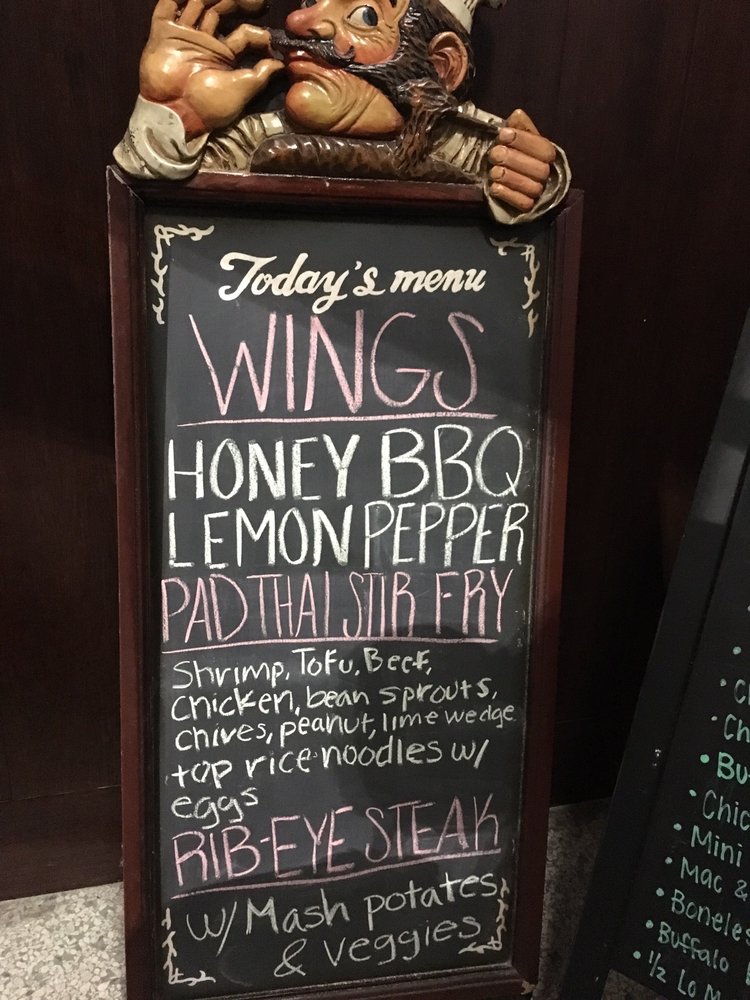 Today's menu
WINGS
HONEY BBQ
LEMON PEPPER
PAD THAI STIR FRY
Shrimp, Tofu, Beef,
chicken, bean sprouts,
chives, peanut, lime wedge
top rice noodles w/
eggs
RIB-EYE STEAK
w/ Mash potates
& veggies
Mini
Mac &
Buffalo